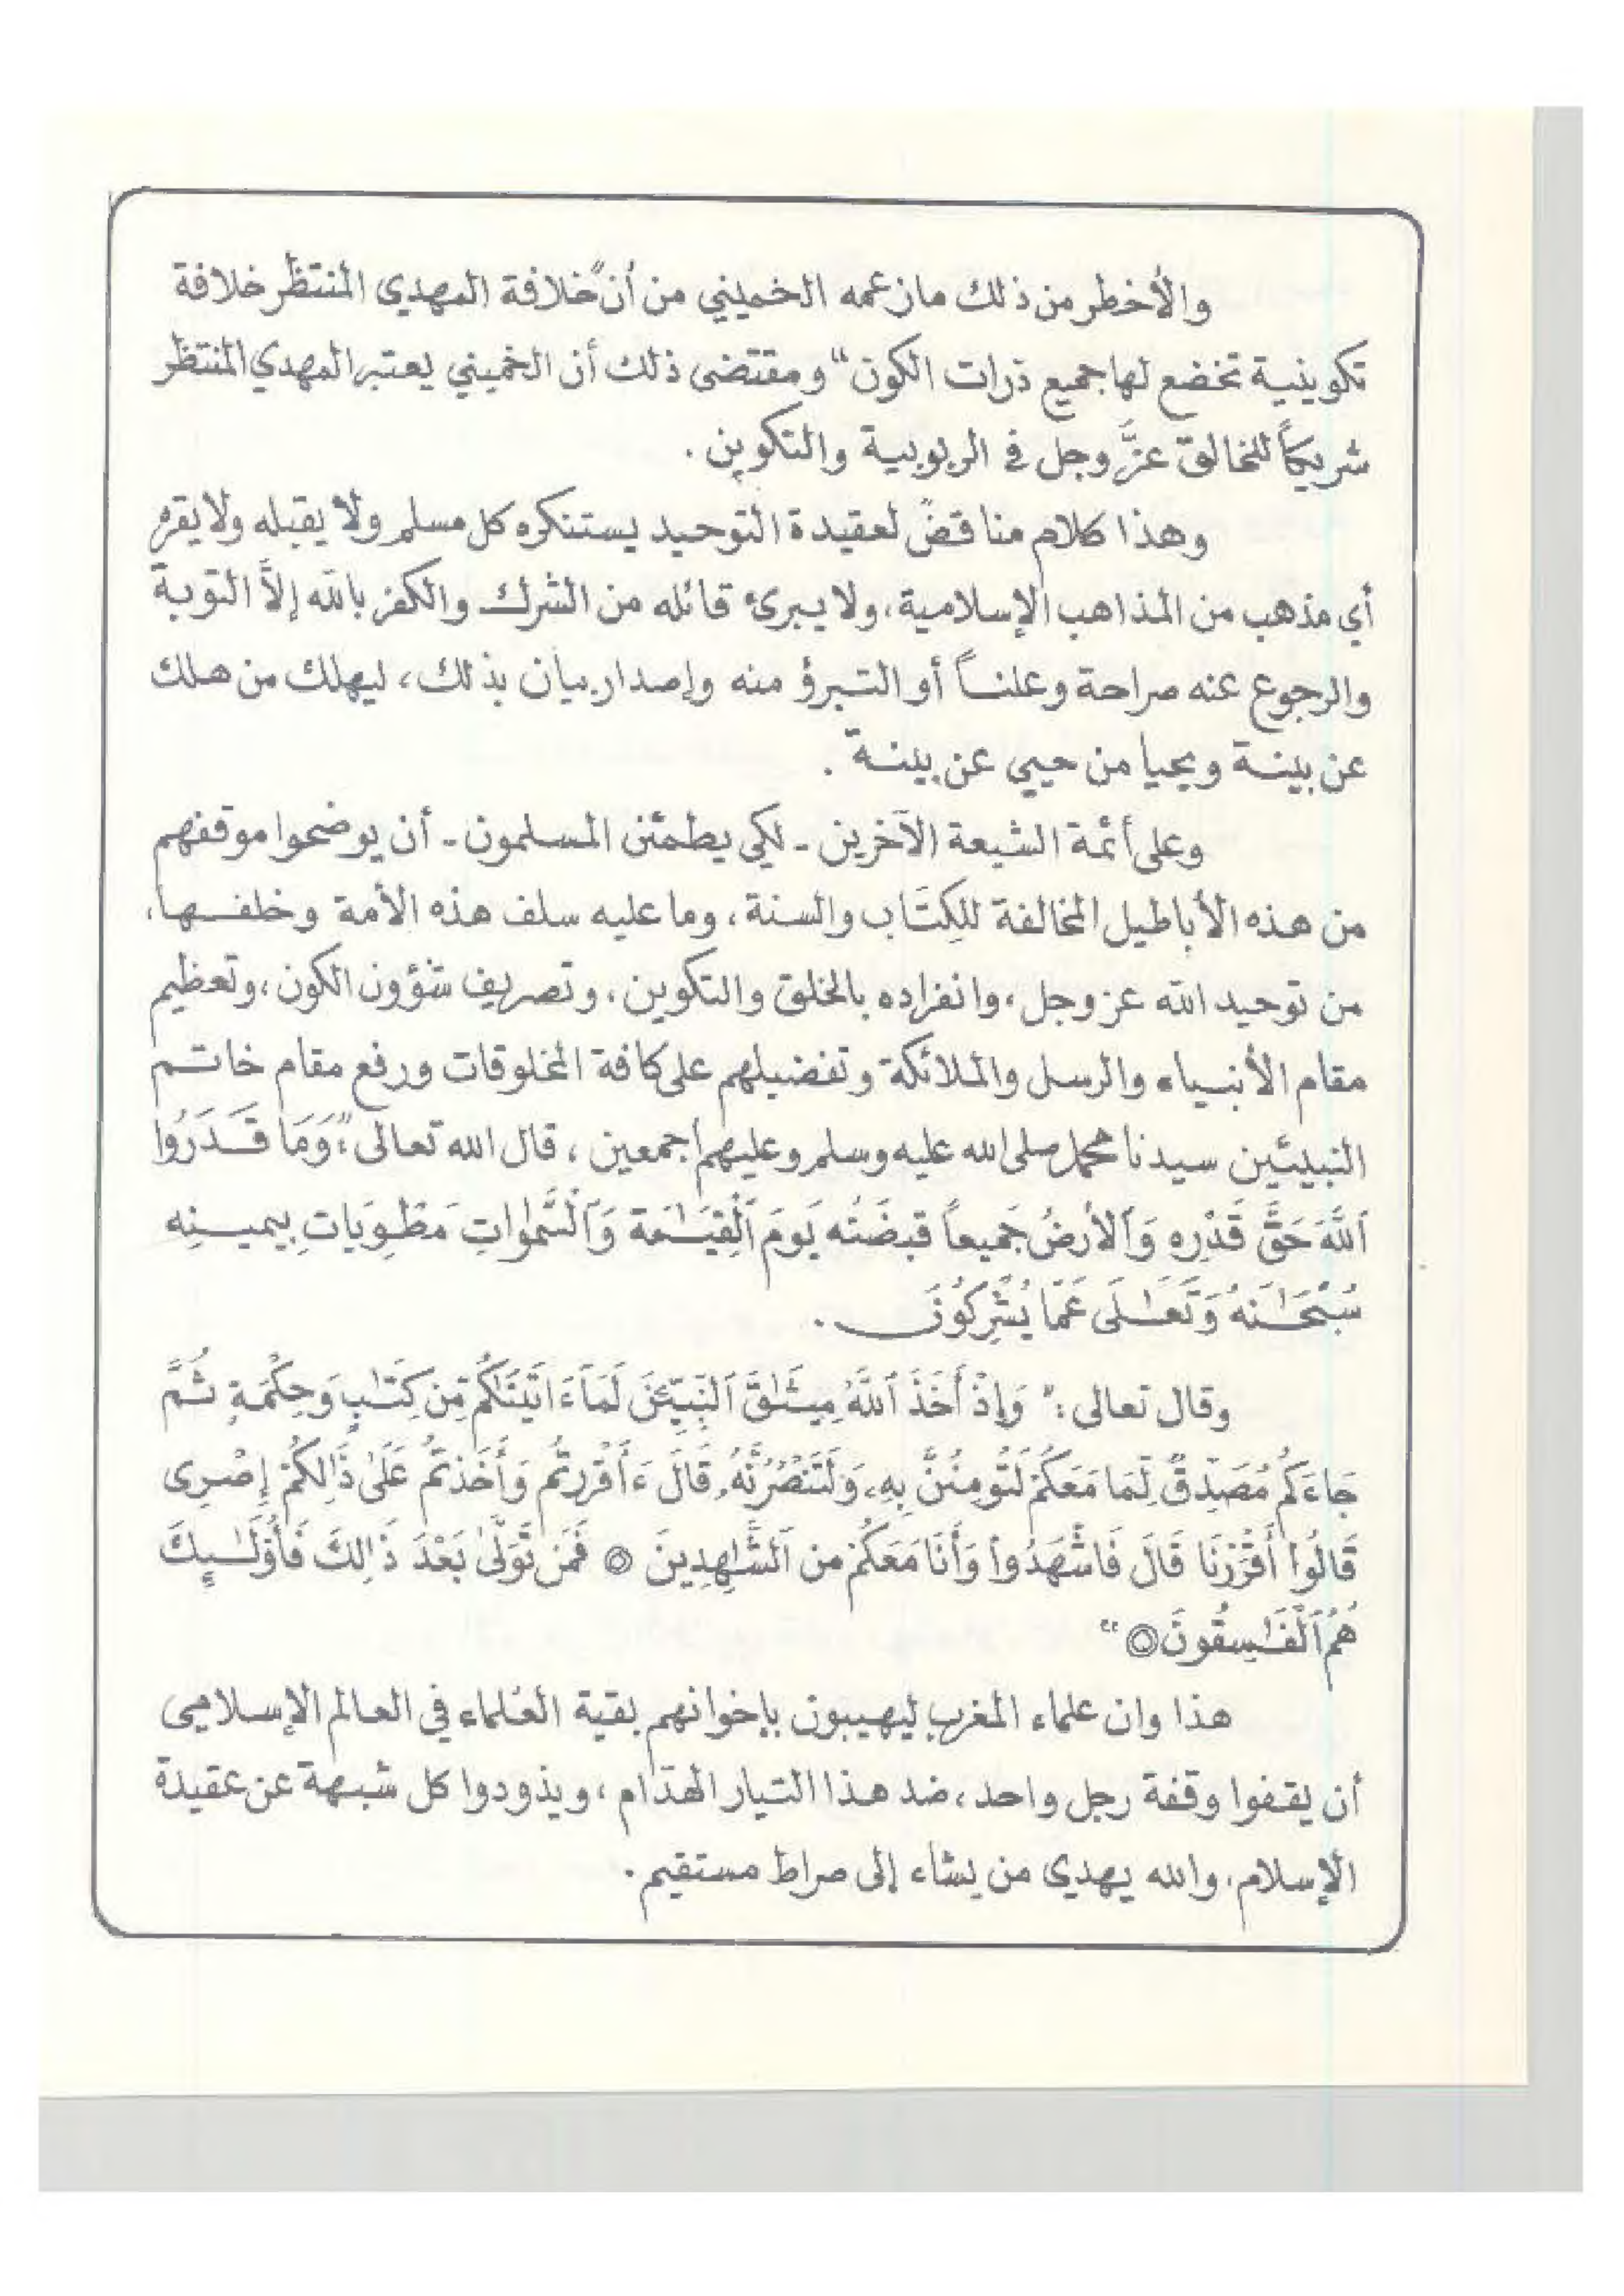 والأخطر من ذلك ما زعمه الخميني من أن "خلافة المهدي المنتظر خلافة
تكوينية تخضع لها جميع ذرات الكون" ومقتضى ذلك أن الخميني يعتبر المهدي المنتظر
شريكاً للخالق عزَّ وجل في الربوبية والتكوين .
وهذا كلام مناقضٌ لعقيدة التوحيد يستنكره كل مسلم ولا يقبله ولا يقره
أي مذهب من المذاهب الإسلامية، ولا يبرئ قائله من الشرك والكفر بالله إلاَّ التوبة
والرجوع عنه صراحة وعلناً أو التبرؤ منه وإصدار بيان بذلك، ليهلك من هلك
عن بينة ويحيا من حيي عن بينة .
وعلى أئمة الشيعة الآخرين - لكي يطمئن المسلمون - أن يوضحوا موقفهم
من هذه الأباطيل المخالفة للكِتَاب والسنة، وما عليه سلف هذه الأمة وخلفها،
من توحيد الله عز وجل، وانفراده بالخلق والتكوين، وتصريف شؤون الكون، وتعظيم
مقام الأنبياء والرسل والملائكة وتفضيلهم على كافة المخلوقات ورفع مقام خاتم
النبيئين سيدنا محمد صلى الله عليه وسلم وعليهم أجمعين ، قال الله تعالى : "وَمَا قَدَرُوا
اَللَّهَ حَقَّ قَدْرِهِ وَاَلأرضُ جَميعاً قبضَتُه يَومَ اَلْقِيَٰمَة وَاَلسَّمٰوَاتِ مَطْوِيَات بِيمينِه
سُبْحَٰنَهُ وَتَعَٰلَى عَمَّا يُشْرِكُونَ .
وقال تعالى : "وَإِذْ أَخَذَ اَللَّهُ مِيثَٰقَ اَلنَّبِيـِٕينَ لَمَا ءَاتَيْنَاكُم مِّن كِتَٰبٍ وَحِكْمَةٍ ثُمَّ
جَاءَكُم مُصَدِّقٌ لِّمَا مَعَكُمْ لَتُومِنُنَّ بِهِ وَلَتَنْصُرُنَّهُ، قَالَ ءَأَقْرَرتُم وَأَخَذتُم عَلَىٰ ذَٰلِكُمْ إِصْرِى
قَالُوا أَقْرَرْنَا قَالَ فَاشْهَدُوا وَأَنَا مَعَكُمْ من اَلشَّٰهِدِينَ ۝ فَمَن تَوَلَّىٰ بَعْدَ ذَٰلِكَ فَأُوْلَٰئِكَ
هُمُ اَلْفَٰسِقُونَ ۝ "
هذا وان علماء المغرب ليهيبون بإخوانهم بقية العُلماء في العالم الإسلامي
أن يقفوا وقفة رجل واحد، ضد هذا التيار الهدّام، ويذودوا كل شبهة عن عقيدة
الإسلام، والله يهدي من يشاء إلى صراط مستقيم .